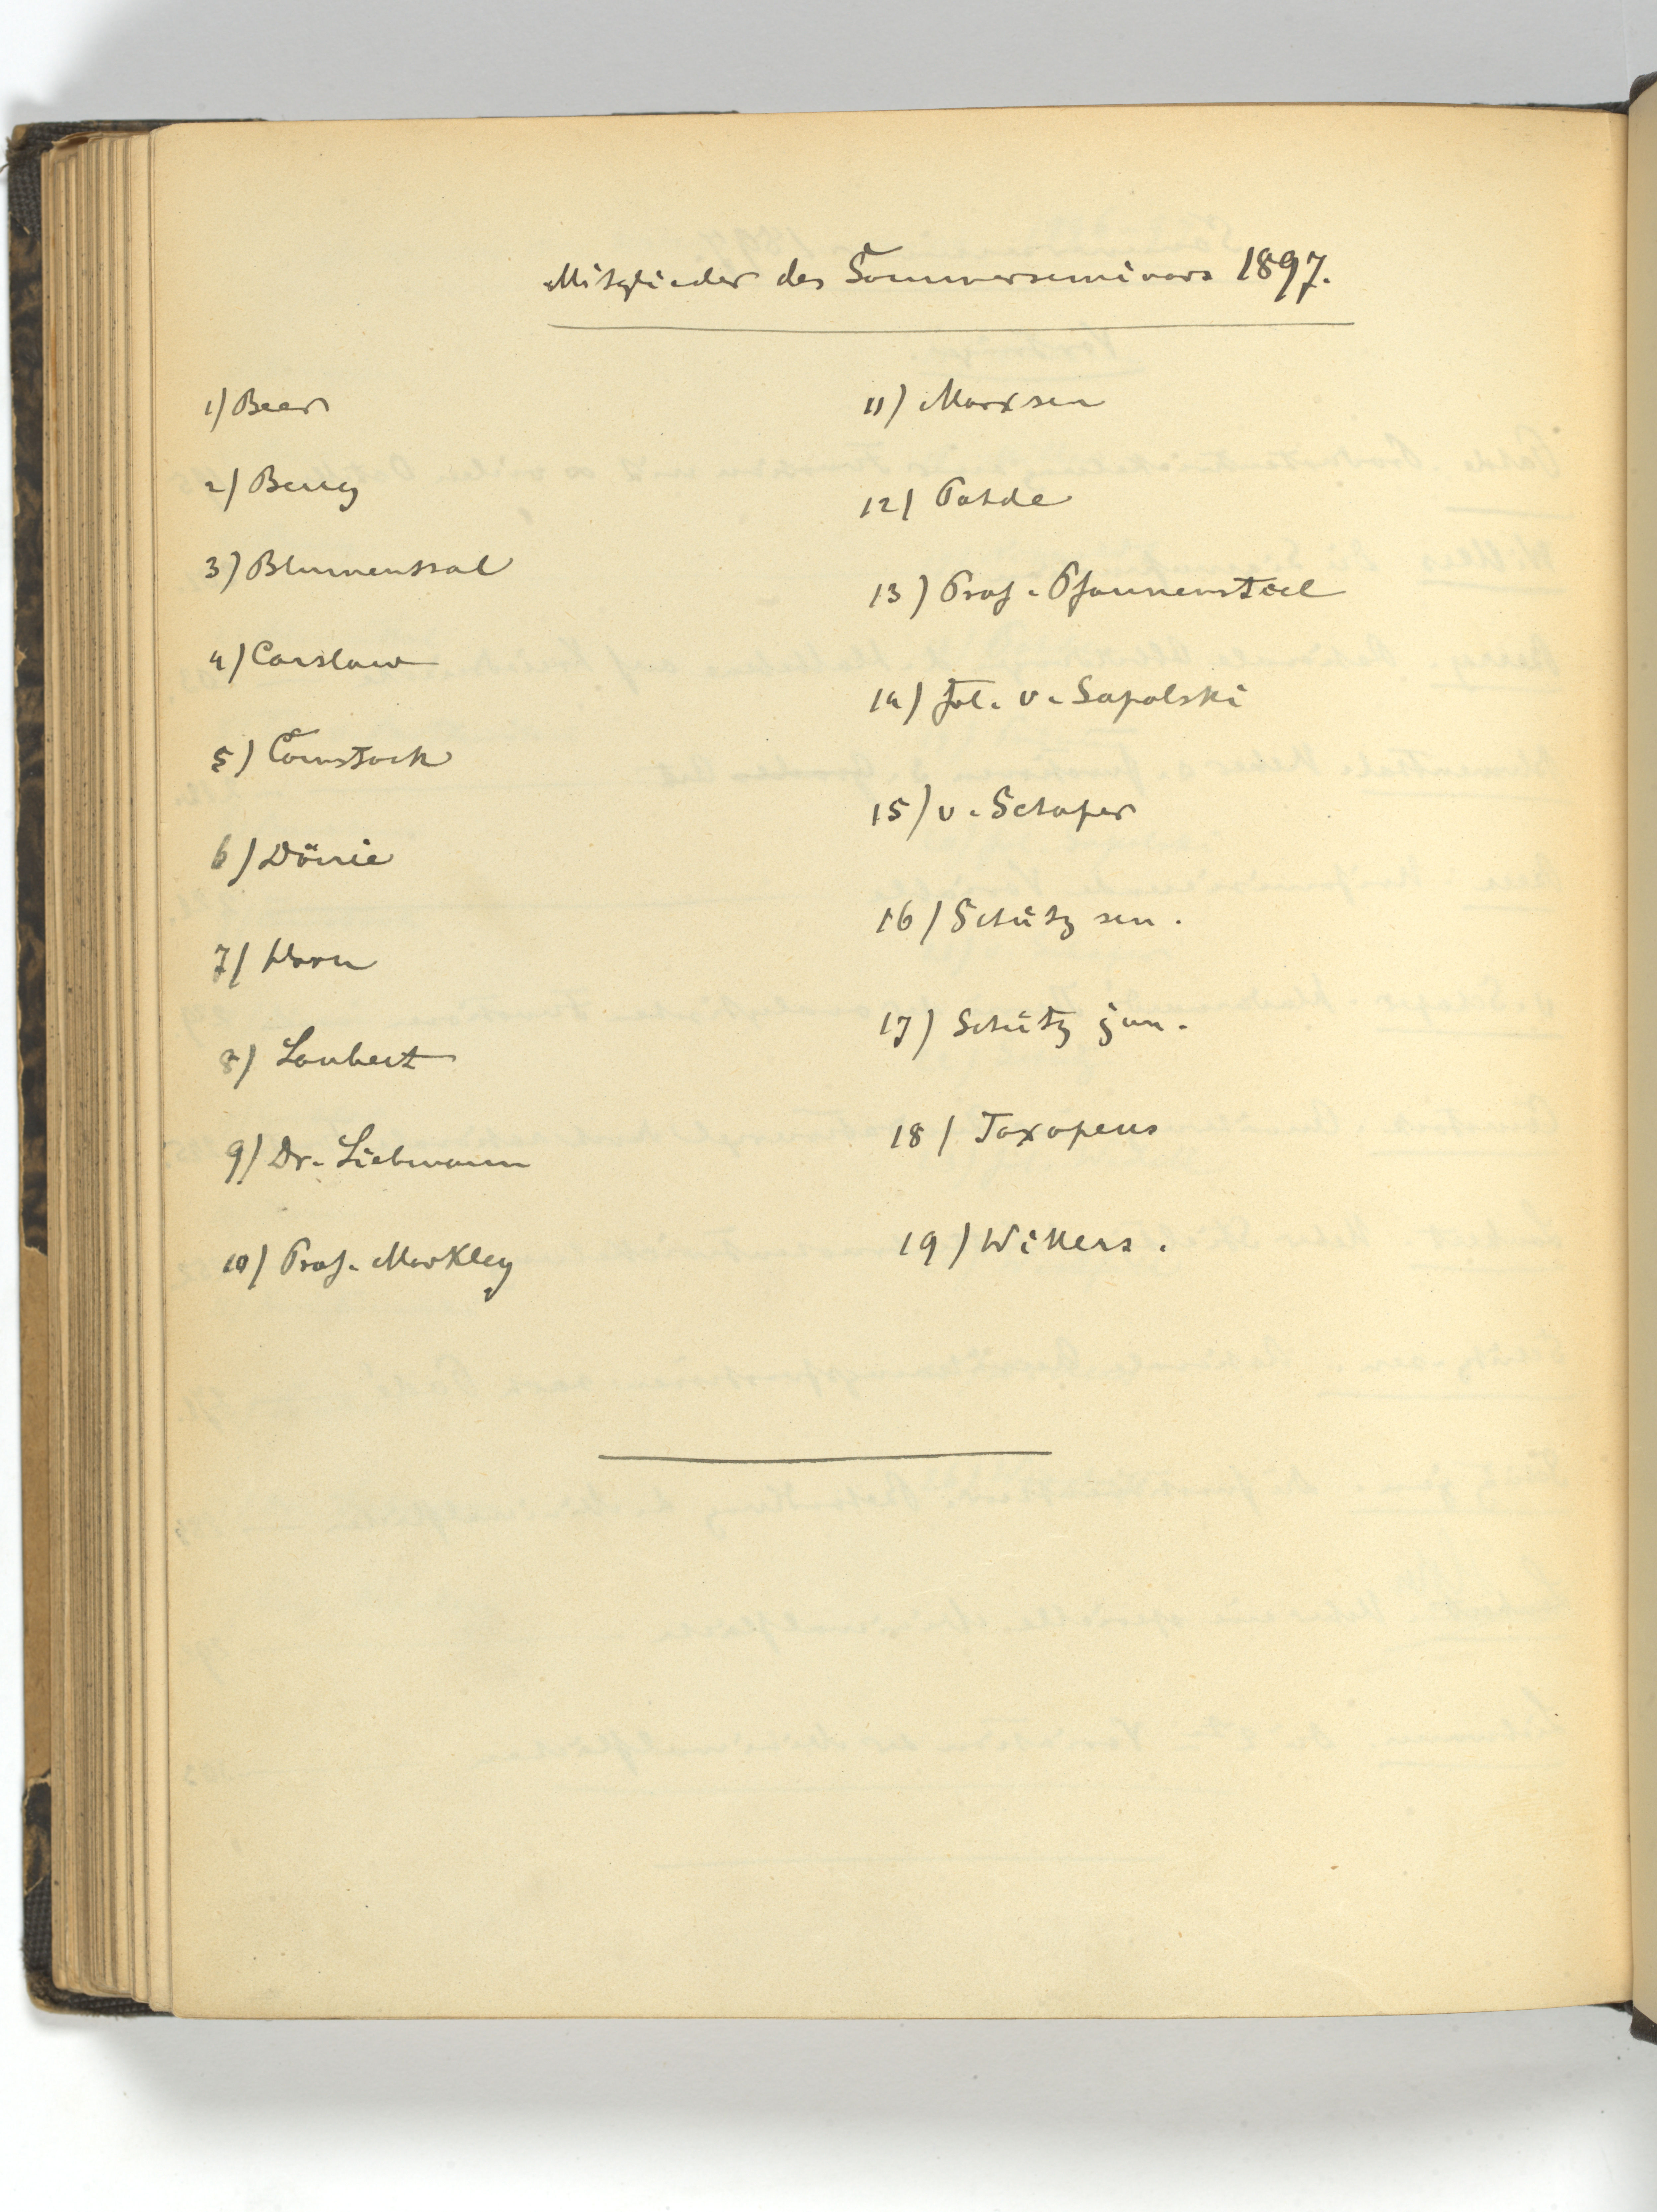 Mitglieder des Sommerseminars 1897.
1) Beer
2) Berry
3) Blumenthal
4) Carslaw
5) Comstock
6) Dörrie
7) Horn
8) Laubert
9) Dr. Liebmann
10) Prof. Markley
11) Marxsen
12) Pohde
13) Prof. Pfannenstiel
14) frl. v. Sapolski
15) v. Schaper
16) Schütz sen.
17) Schütz jun.
18) Toxopeus
19) Willers.